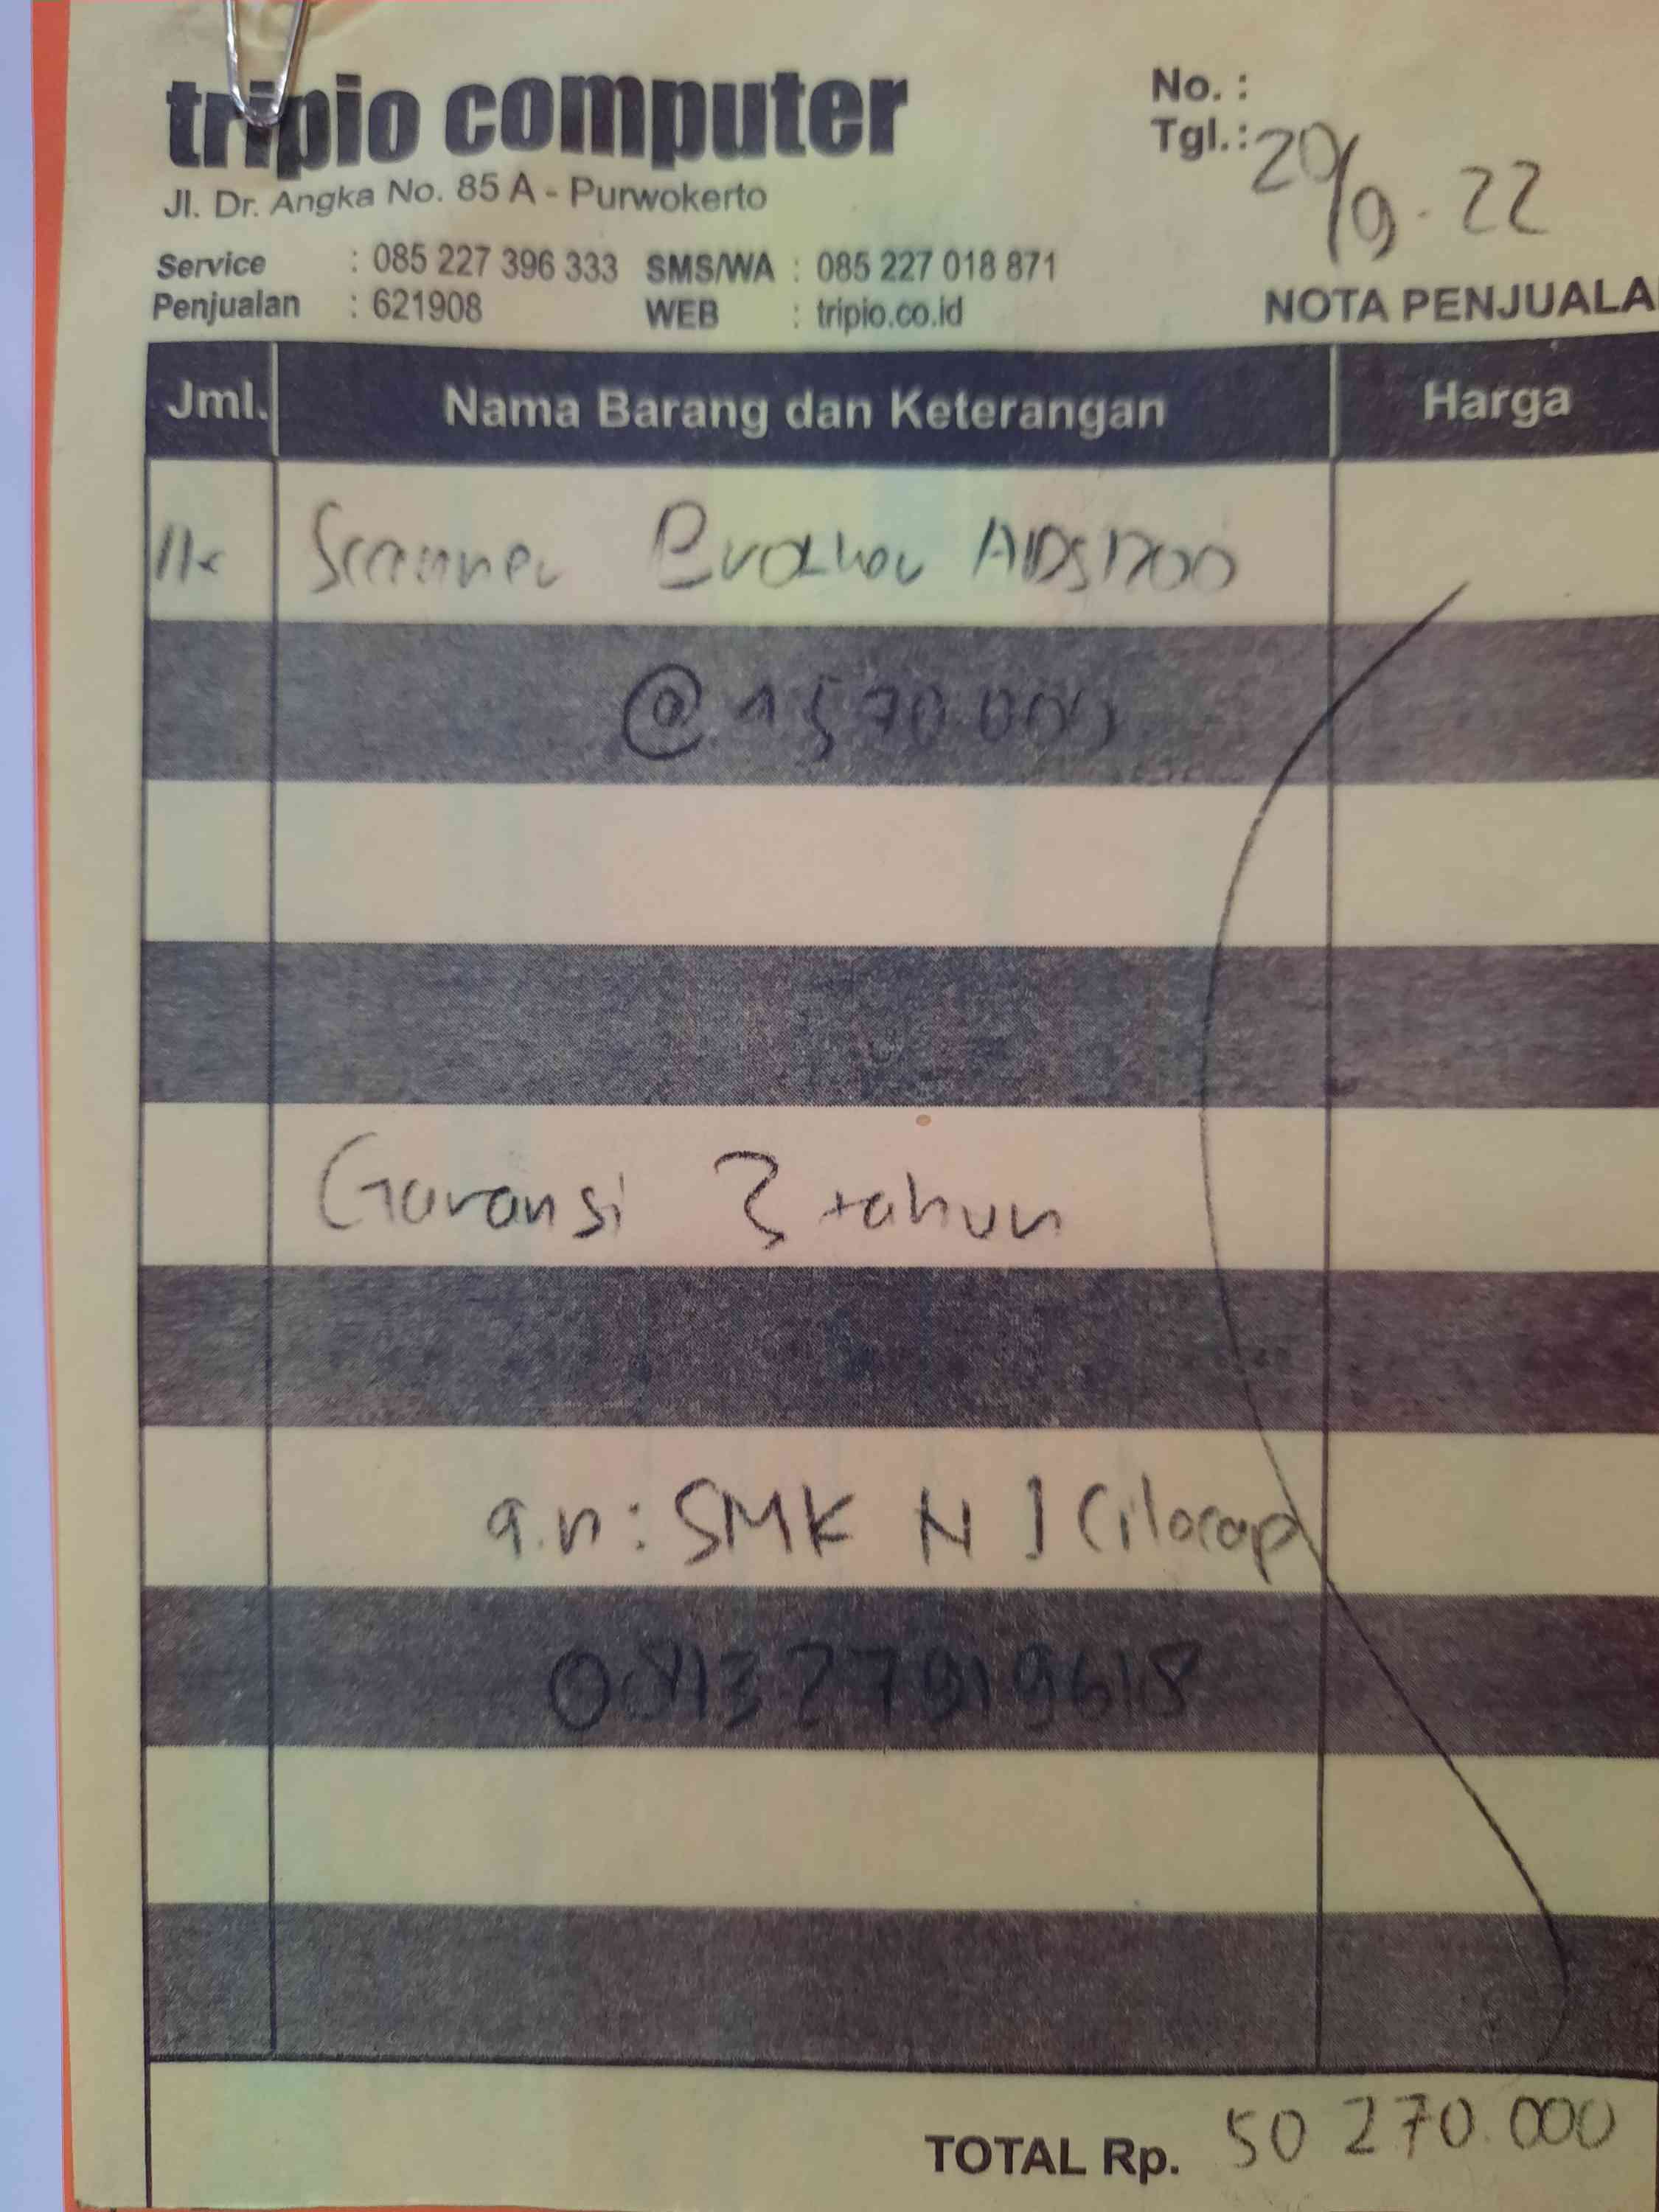 tripio computer
Jl. Dr. Angka No. 85 A - Purwokerto
No. :
Tgl.: 20/9. 22
Service : 085 227 396 333 SMS/WA : 085 227 018 871
Penjualan : 621908 WEB : tripio.co.id
NOTA PENJUALA
Jml. Nama Barang dan Keterangan Harga
11x Scanner Brother ADS1200
@
Garansi 3 tahun
a.n: SMK N 1 Cilacap
081327919618
TOTAL Rp. 50 270.000